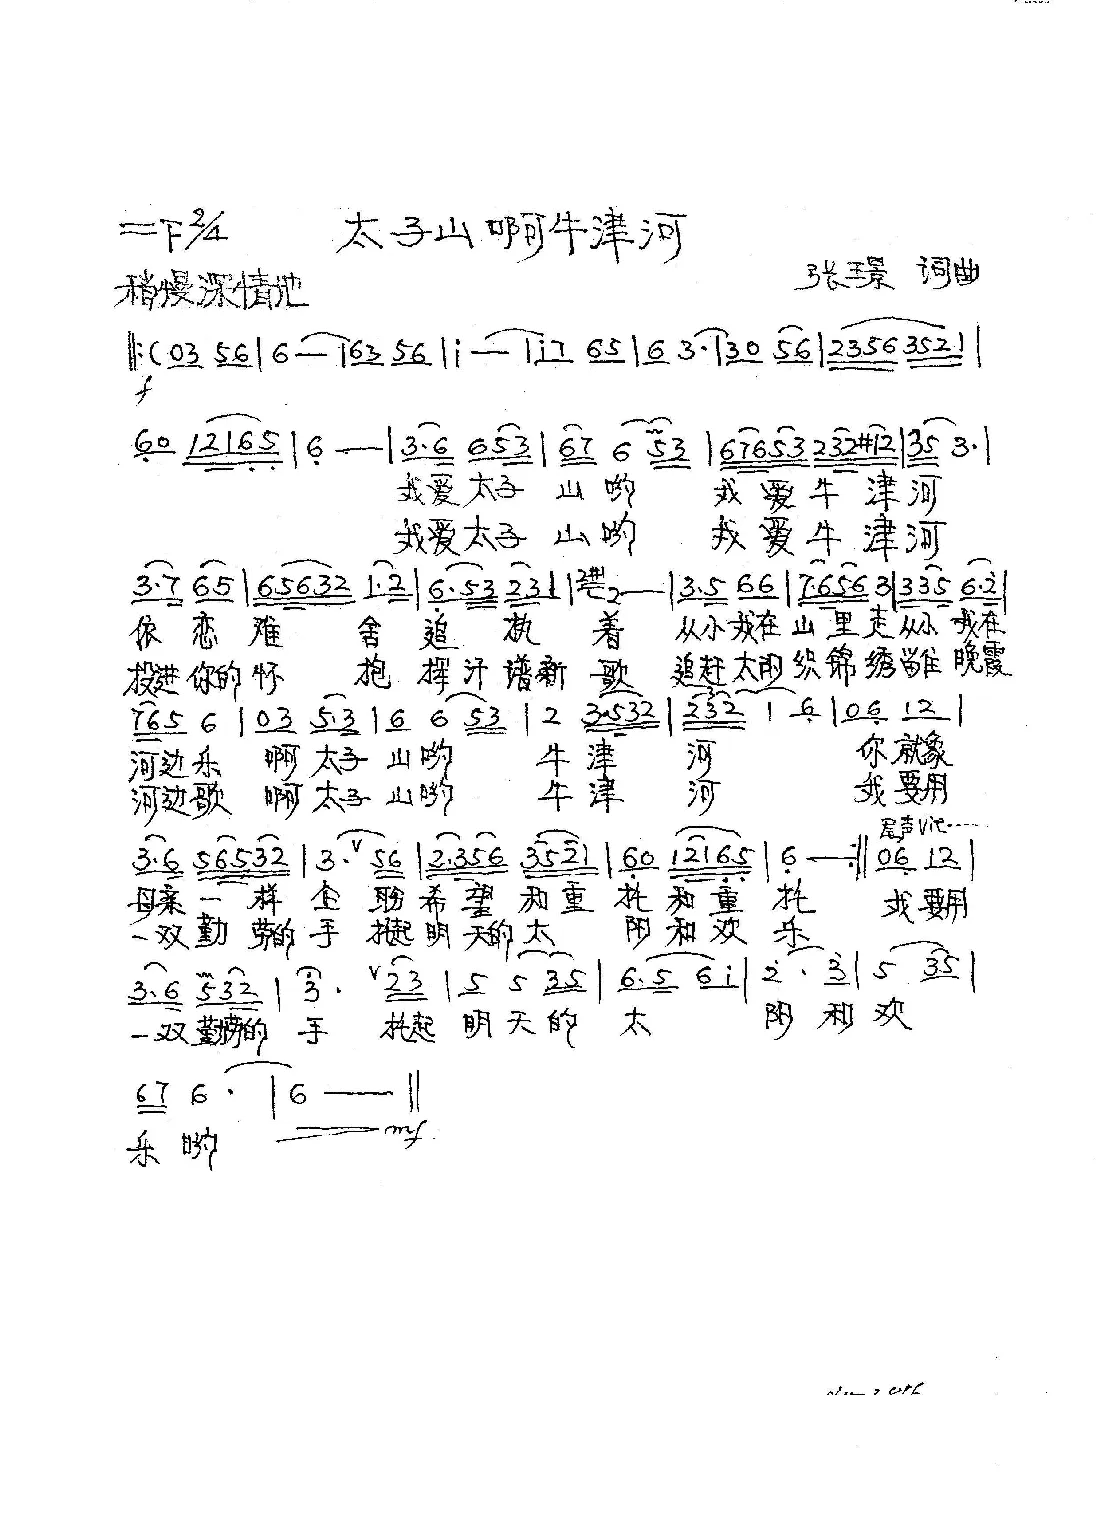 =下2/4 太子山啊牛津河
张璟 词曲
稍慢深情地
‖:(03 56|6—|63 56|i—|i7 65|6 3·|30 56|2356 3521|
f
60 12165|6—|3·6 653|67 6 53|67653 232#12|35 3·|
我爱太子山哟 我爱牛津河
我爱太子山哟 我爱牛津河
3·7 65|65632 1·2|6·53 231|2—|3·5 66|7·656 3|335 6·i|
依恋难舍追执着 从小我在山里走从小我在
投进你的怀抱挥汗谱新歌 追赶太阳织锦绣 晚霞
765 6|03 5·3|6 6 53|2 3·532|232 1 6|06 12|
河边乐 啊太子山哟 牛津河 你就象
河边歌 啊太子山哟 牛津河 我要用
尾声
3·6 56532|3·V 56|2·356 3521|60 12165|6—:‖06 12|
母亲一样企盼希望和重托和重托 我要用
一双勤劳的手托起明天的太阳和欢乐
3·6 532|3· V 23|5 5 35|6·5 6i|2·3|5 35|
一双勤劳的手 托起明天的太阳和欢
67 6·|6—‖
乐哟